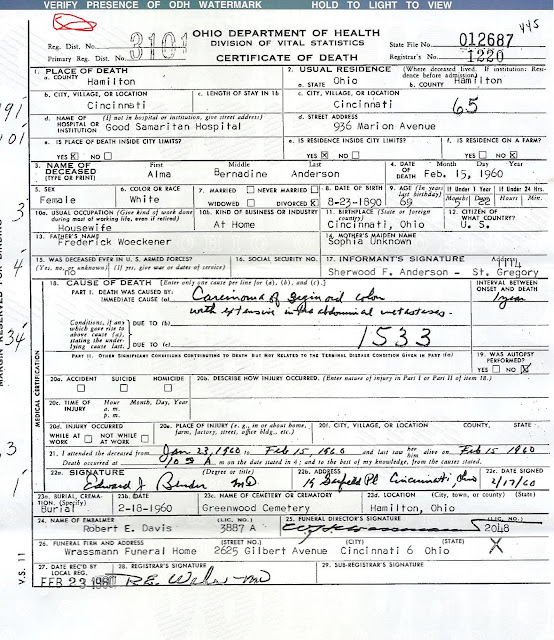 VERIFY PRESENCE OF ODH WATERMARK HOLD TO LIGHT TO VIEW
445
Reg. Dist. No. 3101 OHIO DEPARTMENT OF HEALTH
DIVISION OF VITAL STATISTICS State File No. 012687
Primary Reg. Dist. No. CERTIFICATE OF DEATH Registrar's No. 1220
1. PLACE OF DEATH 2. USUAL RESIDENCE (Where deceased lived. If institution: Residence before admission)
a. COUNTY Hamilton a. STATE Ohio b. COUNTY Hamilton
b. CITY, VILLAGE, OR LOCATION c. LENGTH OF STAY IN 1b c. CITY, VILLAGE, OR LOCATION
Cincinnati Cincinnati 65
d. NAME OF HOSPITAL OR INSTITUTION (If not in hospital or institution, give street address) d. STREET ADDRESS
Good Samaritan Hospital 936 Marion Avenue
e. IS PLACE OF DEATH INSIDE CITY LIMITS? e. IS RESIDENCE INSIDE CITY LIMITS? f. IS RESIDENCE ON A FARM?
YES X NO YES X NO YES NO X
3. NAME OF DECEASED (TYPE OR PRINT) First Middle Last 4. DATE OF DEATH Month Day Year
Alma Bernadine Anderson Feb. 15, 1960
5. SEX 6. COLOR OR RACE 7. MARRIED NEVER MARRIED 8. DATE OF BIRTH 9. AGE (In years last birthday) If Under 1 Year If Under 24 Hrs.
Female White WIDOWED DIVORCED X 8-23-1890 69 Months 5 Days 22 Hours Min.
10a. USUAL OCCUPATION (Give kind of work done during most of working life, even if retired) 10b. KIND OF BUSINESS OR INDUSTRY 11. BIRTHPLACE (State or foreign country) 12. CITIZEN OF WHAT COUNTRY?
Housewife At Home Cincinnati, Ohio U. S.
13. FATHER'S NAME 14. MOTHER'S MAIDEN NAME
Frederick Woeckener Sophia Unknown
15. WAS DECEASED EVER IN U. S. ARMED FORCES? 16. SOCIAL SECURITY NO. 17. INFORMANT'S SIGNATURE Address
(Yes, no, or unknown) (If yes, give war or dates of service) Sherwood F. Anderson - St. Gregory
18. CAUSE OF DEATH [Enter only one cause per line for (a), (b), and (c).] INTERVAL BETWEEN ONSET AND DEATH
PART I. DEATH WAS CAUSED BY:
IMMEDIATE CAUSE (a) Carcinoma of sigmoid colon 1 year
with extensive intra abdominal metastases.
Conditions, if any which gave rise to above cause (a), stating the underlying cause last. DUE TO (b)
DUE TO (c) 1533
PART II. OTHER SIGNIFICANT CONDITIONS CONTRIBUTING TO DEATH BUT NOT RELATED TO THE TERMINAL DISEASE CONDITION GIVEN IN PART I(a) 19. WAS AUTOPSY PERFORMED?
YES NO X
20a. ACCIDENT SUICIDE HOMICIDE 20b. DESCRIBE HOW INJURY OCCURRED. (Enter nature of injury in Part I or Part II of item 18.)
20c. TIME OF INJURY Hour Month, Day, Year
a. m.
p. m.
20d. INJURY OCCURRED 20e. PLACE OF INJURY (e.g., in or about home, farm, factory, street, office bldg., etc.) 20f. CITY, VILLAGE, OR LOCATION COUNTY STATE
WHILE AT WORK NOT WHILE AT WORK
21. I attended the deceased from Jan 23, 1960 to Feb 15, 1960 and last saw her him alive on Feb 15 1960
Death occurred at 10 5 A. m on the date stated in 4; and to the best of my knowledge, from the causes stated.
22a. SIGNATURE (Degree or title) 22b. ADDRESS 22c. DATE SIGNED
Edward J MD Pl Cincinnati, Ohio 2/17/60
23a. BURIAL, CREMATION, (Specify) 23b. DATE 23c. NAME OF CEMETERY OR CREMATORY 23d. LOCATION (City, town, or county) (State)
Burial 2-18-1960 Greenwood Cemetery Hamilton, Ohio
24. NAME OF EMBALMER (LIC. NO.) 25. FUNERAL DIRECTOR'S SIGNATURE (LIC. NO.)
Robert E. Davis 3887 A 2048
26. FUNERAL FIRM AND ADDRESS (STREET NO.) (CITY) (STATE)
Wrassmann Funeral Home 2625 Gilbert Avenue Cincinnati 6 Ohio
27. DATE REC'D BY LOCAL REG. 28. REGISTRAR'S SIGNATURE 29. SUB-REGISTRAR'S SIGNATURE
FEB 23 1960
MARGIN RESERVED FOR BINDING
MEDICAL CERTIFICATION
V.S. 11